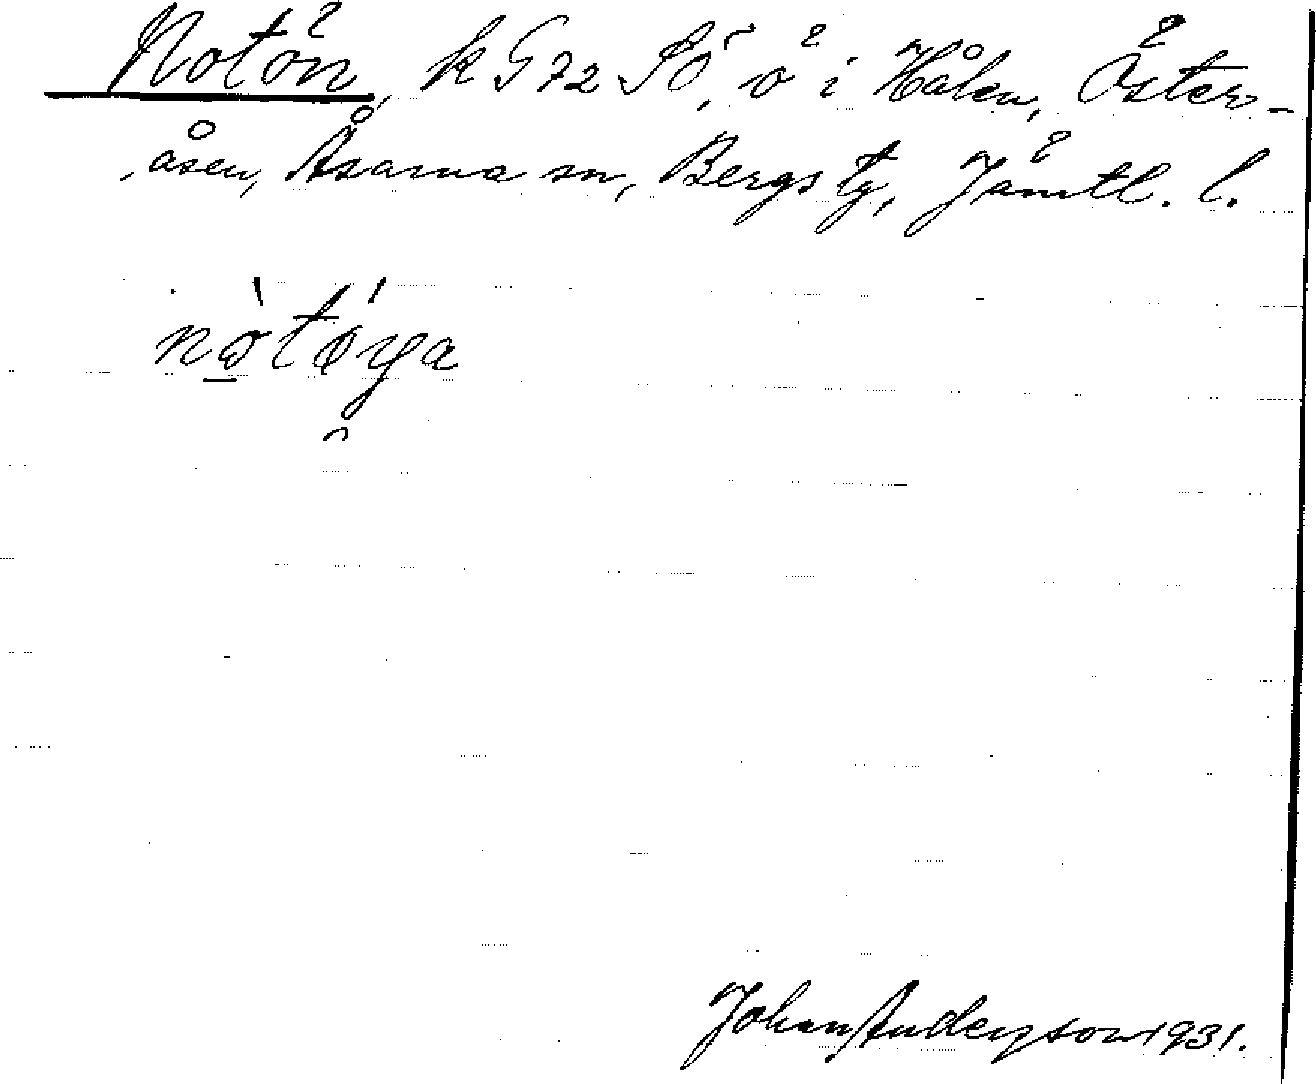 Notön, k G72 SÖ, ö i Hålen, Öster-
åsen, Åsarna sn, Bergs tg, Jämtl. l.
nò̱tǿya
Johan Anderson 1931.